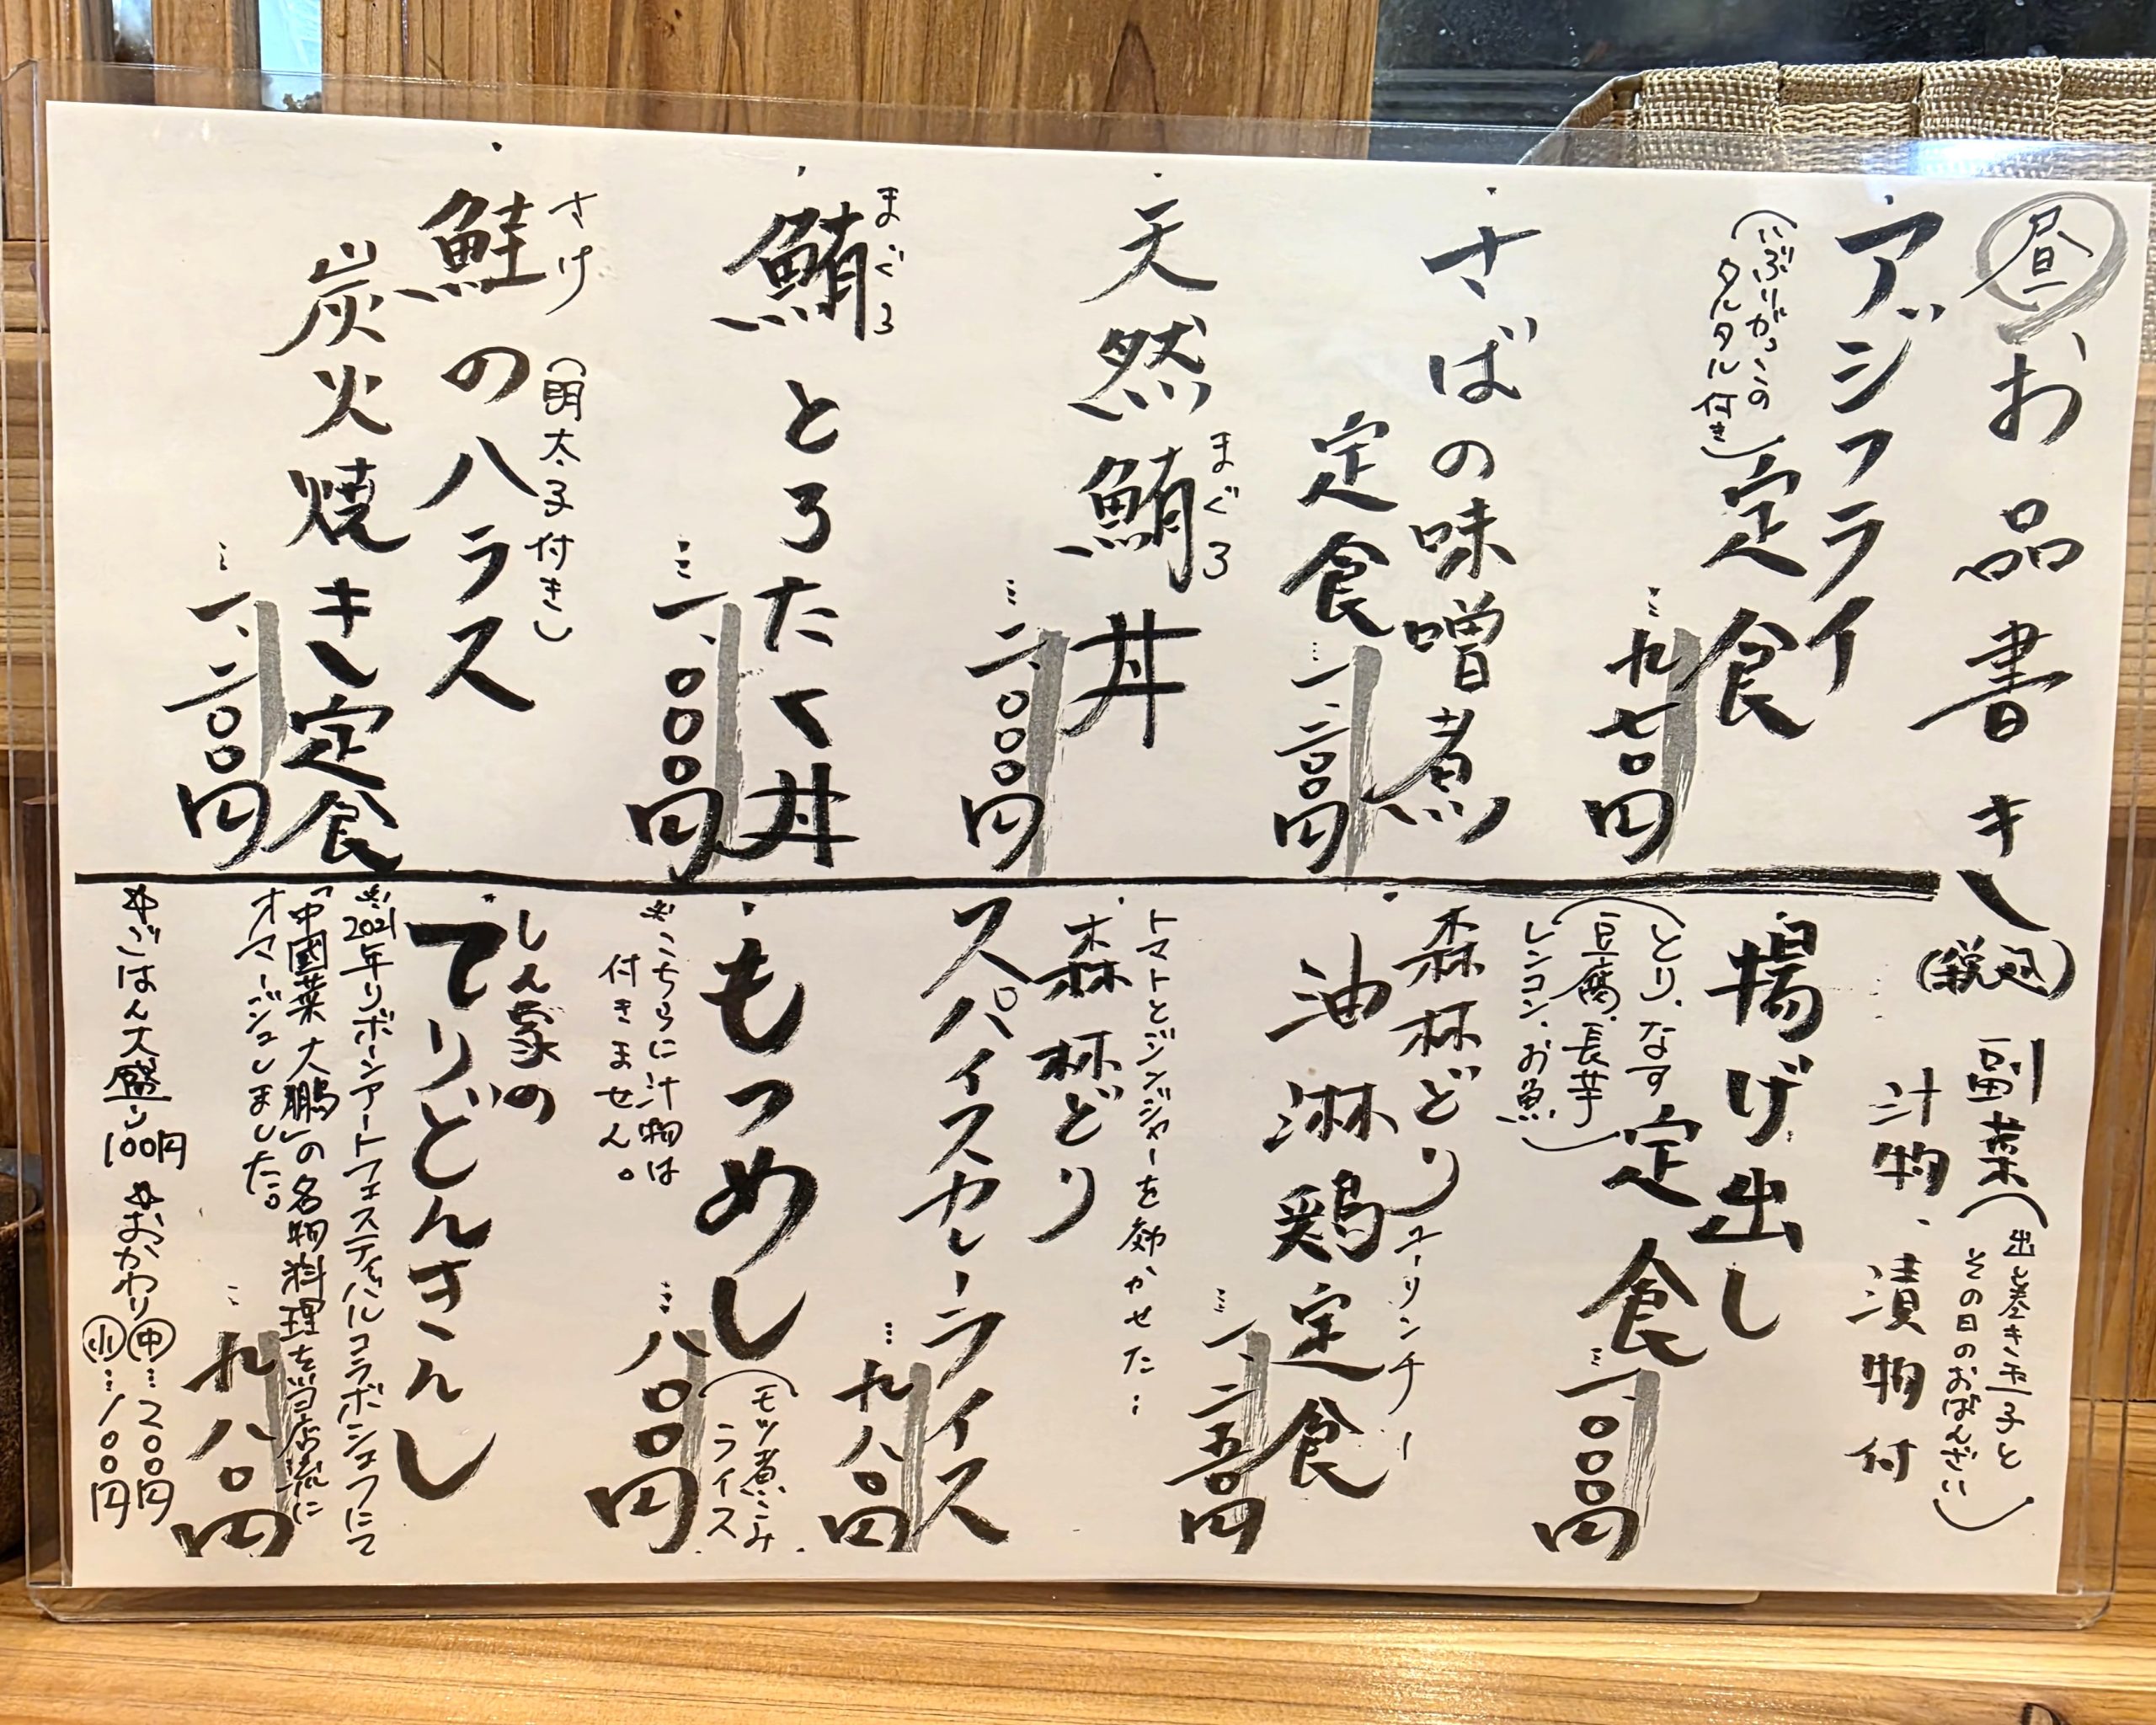 昼お品書き(税込)
副菜(出し巻き玉子と
その日のおばんざい)
汁物、漬物付
アジフライ
(いぶりがっこの
タルタル付き)
定食
…九七〇円
さばの味噌煮
定食
…一、二〇〇円
天然鮪丼
まぐろ
…二、〇〇〇円
鮪とろたく丼
まぐろ
…一、〇〇〇円
鮭のハラス
さけ
(明太子付き)
炭火焼き定食
…一、二〇〇円
揚げ出し
(とり、なす
豆腐、長芋
レンコン、お魚)
定食
…一、〇〇〇円
森林どり
油淋鶏定食
ユーリンチー
…一、二五〇円
トマトとジンジャーを効かせた…
森林どり
スパイスカレーライス
…九八〇円
もつめし
(モツ煮こみ
ライス
…八〇〇円
※こちらに汁物は
付きません。
しん家の
てりどんきんし
※2021年リボーンアートフェスティバルコラボシェフにて
「中國菜 大鵬」の名物料理を当店流に
オマージュしました。
…九八〇円
※ごはん大盛り100円 ※おかわり中…200円
小…100円